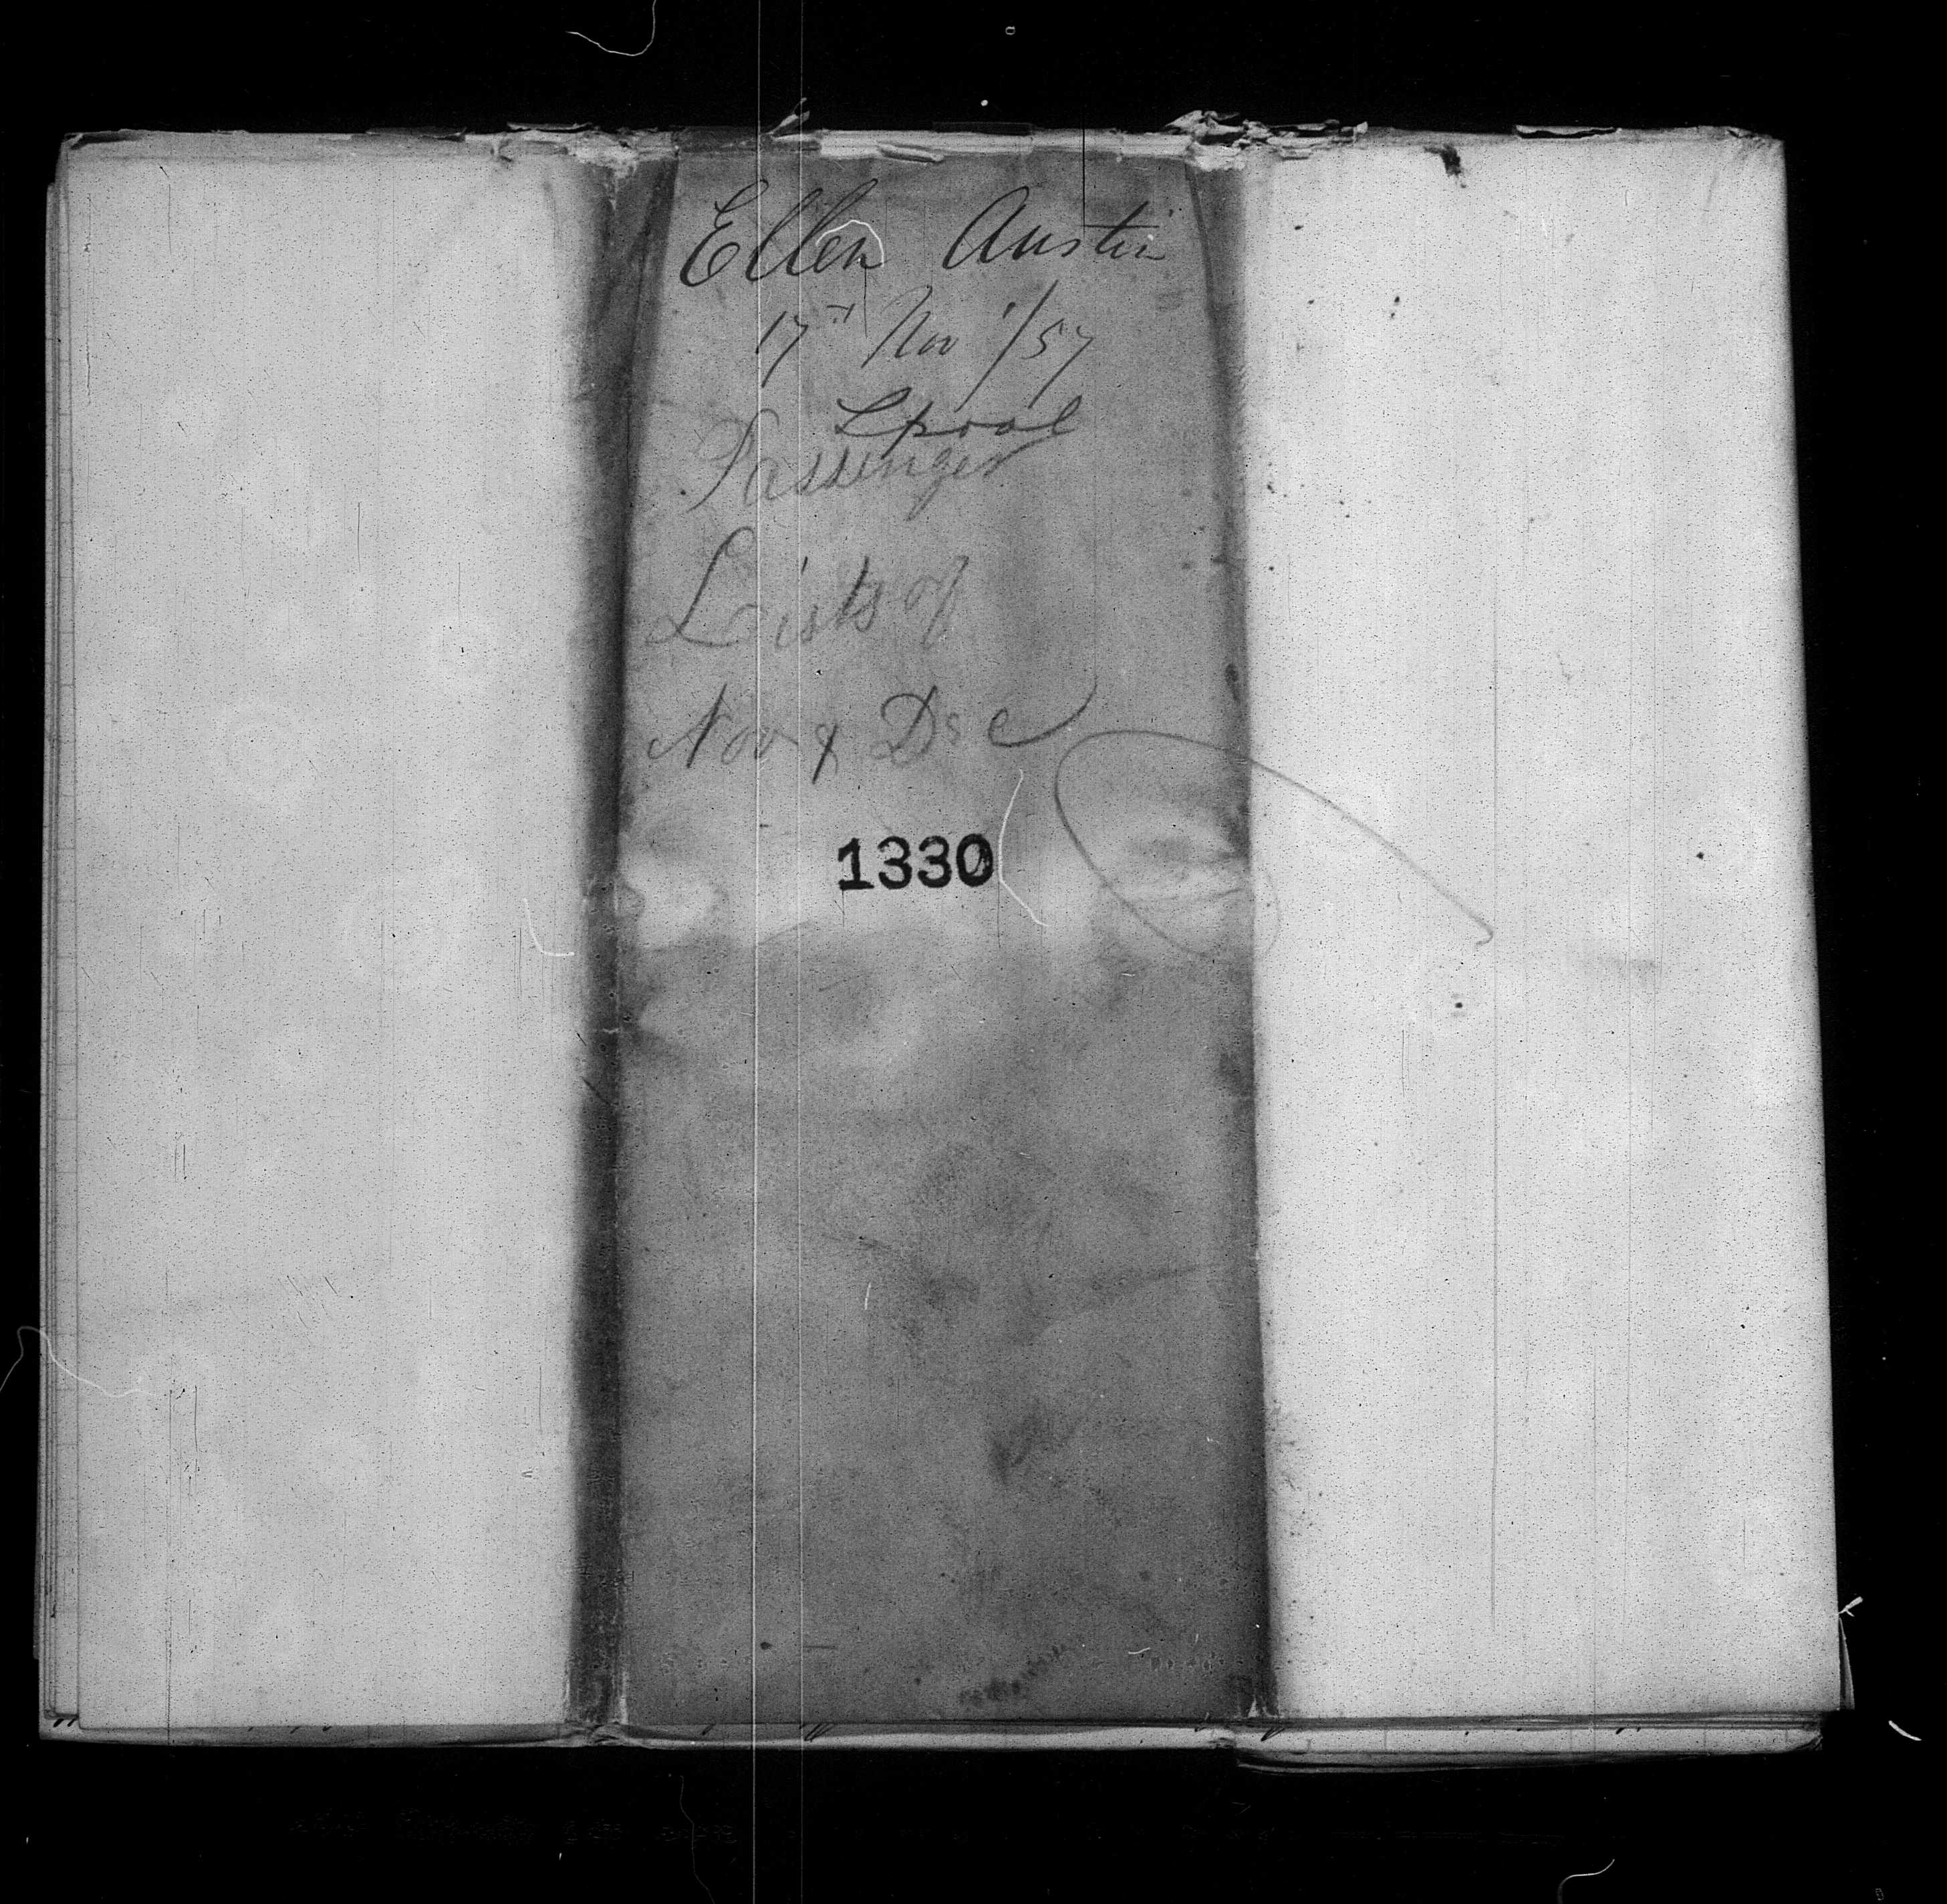 Ellen Austin
17th Nov '/57
Lpool
Passenger
Lists of
Nov & Dec
1330